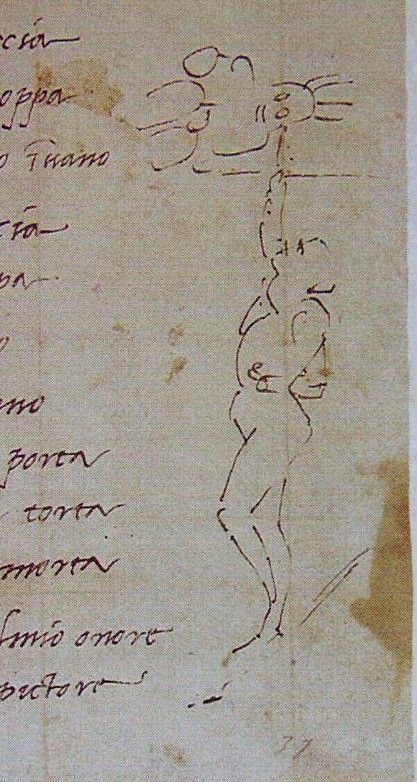 ccia
oppa
o īuano
ccia
pa
o
ano
porta
torta
morta
lmio onore
pictore